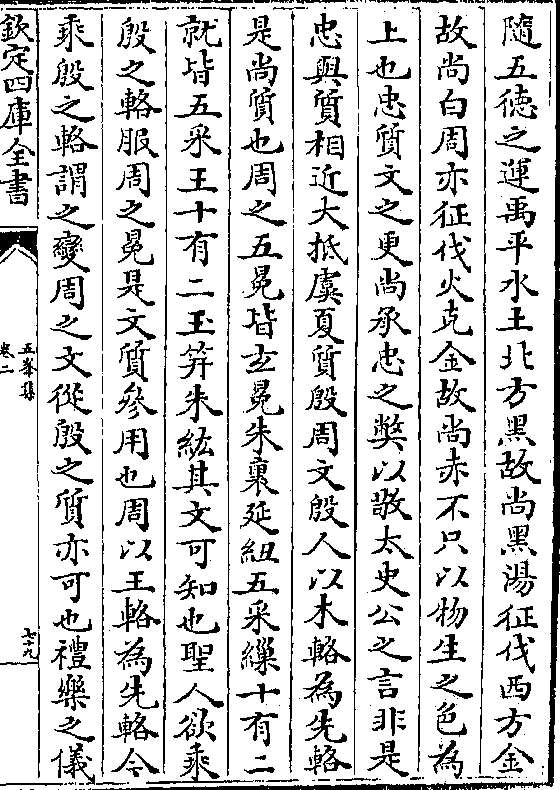 隨五徳之運禹平水土北方黑故尚黑湯征伐西方金
故尚白周亦征伐火克金故尚赤不只以物生之色為
上也忠質文之更尚承忠之獘以敬太史公之言非是
忠與質相近大抵虞夏質殷周文殷人以木輅為先輅
是尚質也周之五冕皆玄冕朱裏延紐五采繅十有二
就皆五采玉十有二玉筓朱紘其文可知也聖人欲乘
殷之輅服周之冕是文質參用也周以玉輅為先輅今
乘殷之輅謂之變周之文從殷之質亦可也禮樂之儀
欽定四庫全書
五峯集
卷二
七十九